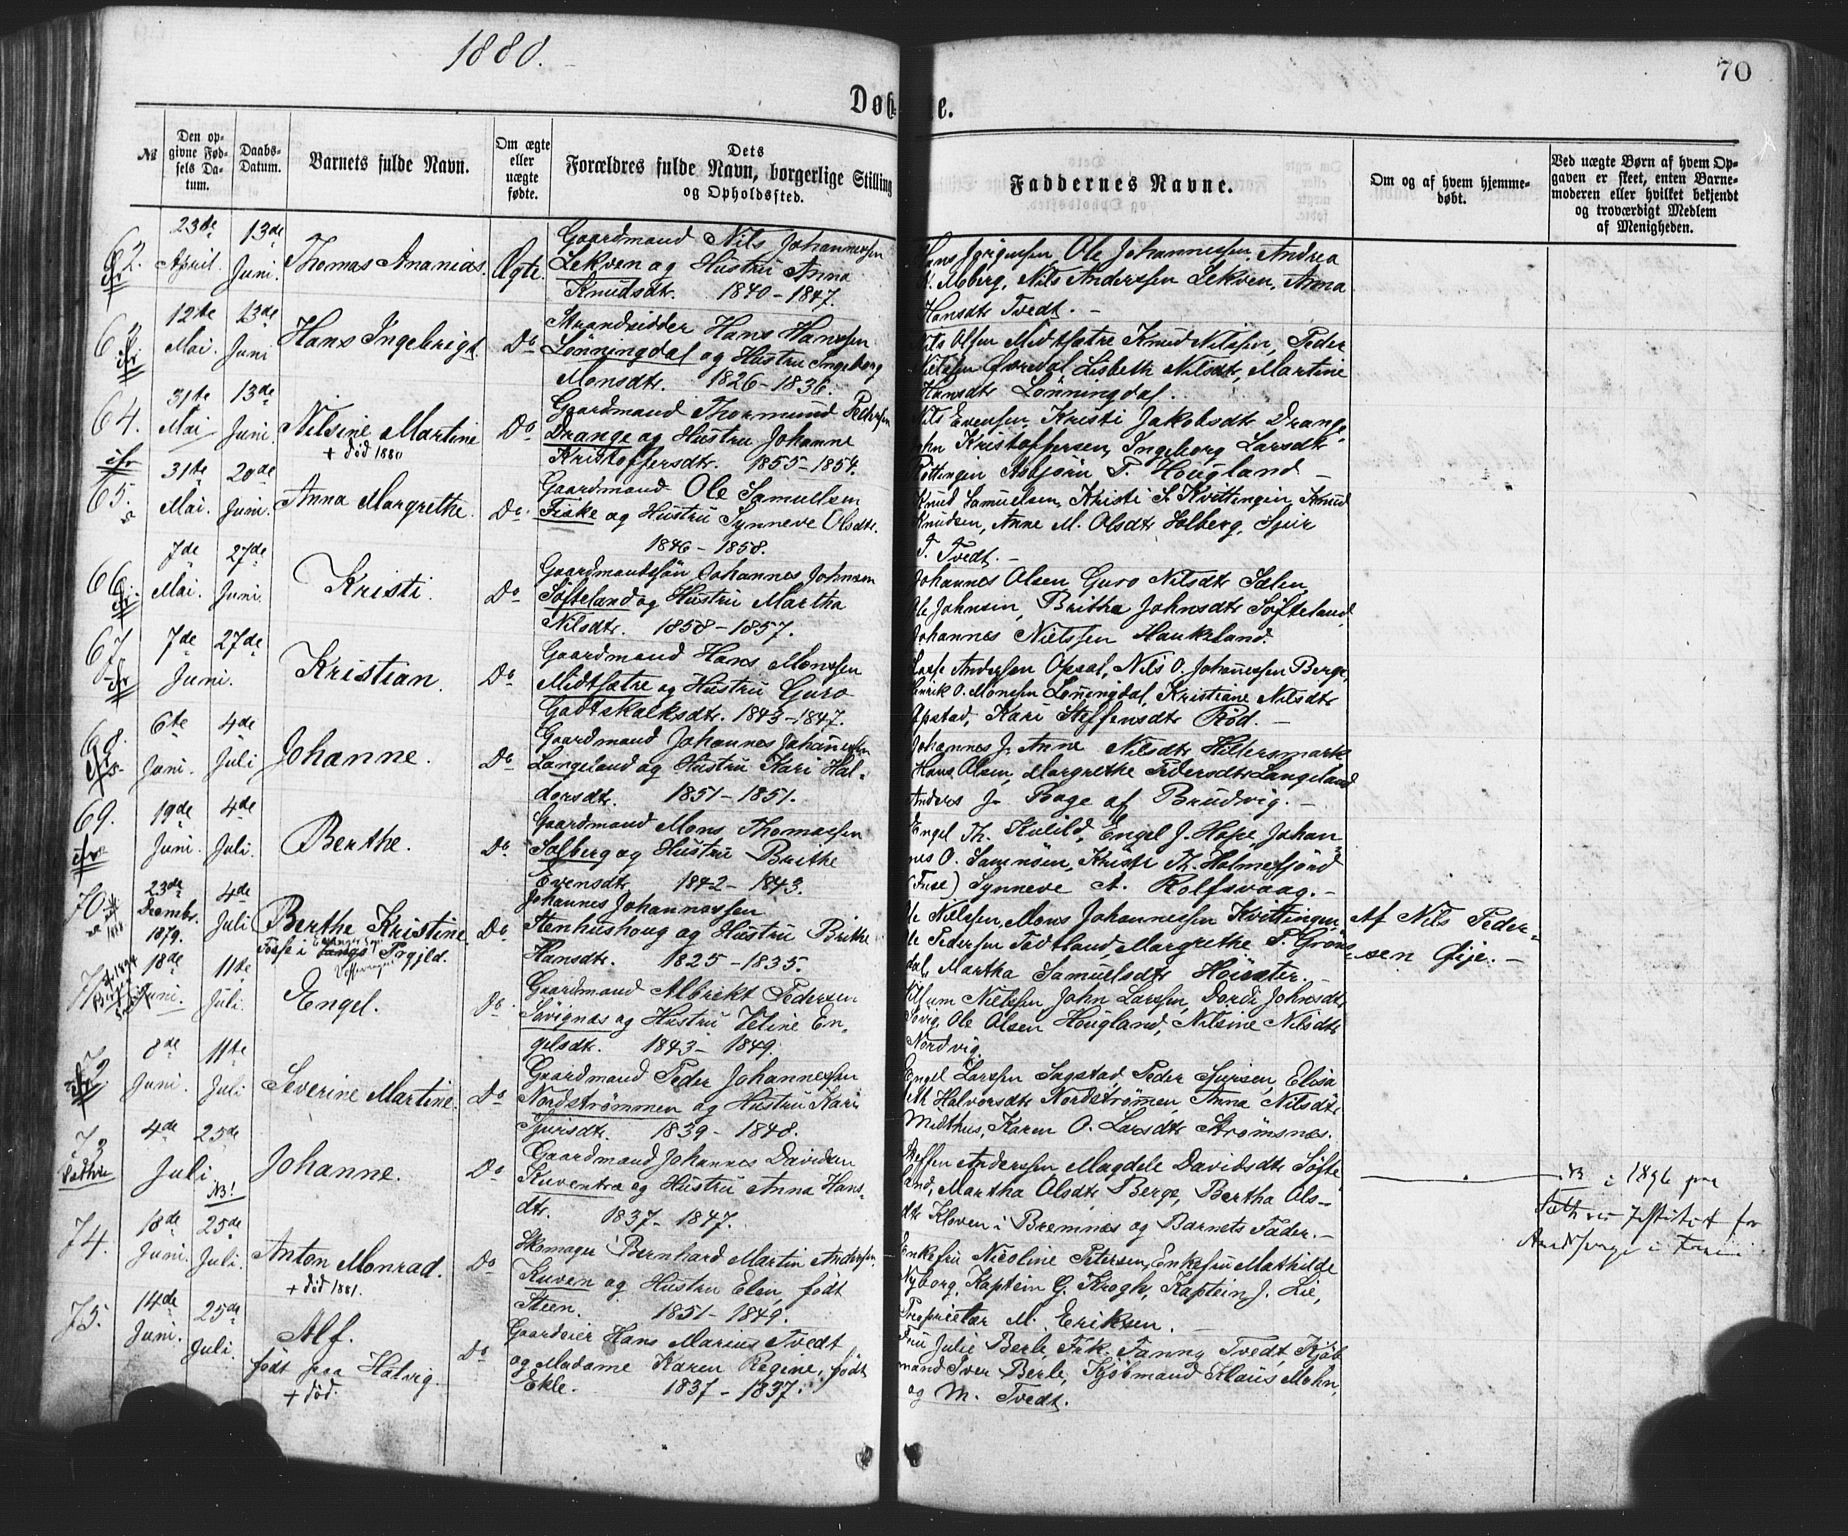 1880.
70
Døbte.
№
Den opgivne Fødsels Datum.
Daabs-Datum.
Barnets fulde Navn.
Om ægte eller uægte fødte.
Dets Forældres fulde Navn, borgerlige Stilling og Opholdssted.
Faddernes Navne.
Om og af hvem hjemmedøbt.
Ved uægte Børn af hvem Opgaven er skeet, enten Barnemoderen eller hvilket bekjendt og troværdigt Medlem af Menigheden.
62.
23de April.
13de Juni.
Thomas Ananias.
Ægte.
Gaardmand Nils Johannessen
Lekven og Hustru Anna
Knudsdtr. 1840-1847.
Hans Jørgensen, Ole Johannessen, Andrea
K. Moberg, Nils Anderssen Lekven, Anna
Hansdtr Tvedt. -
63.
12te Mai.
13de Juni
Hans Ingebrigt.
Do
Strandsidder Hans Hanssen
Lønningdal og Hustru Ingeborg
Monsdtr. 1826-1836.
Nils Olsen Midtsætre Knud Nilssen, Peder
Nielssen Øvredal Lisbeth Nilsdtr, Martine
Hansdtr Lønningdal.
64.
31te Mai
13de Juni.
Nilsine Martine
+ død 1880
Do
Gaardmand Thormund Pedersen
Drange og Hustru Johanne
Kristoffersdtr. 1855-1854.
Nils Evensen, Kristi Jakobsdtr Drange,
John Kristoffersen, Ingeborg Larsdtr
Røttingen Asbjørn T. Hougland -
65.
31te Mai.
20de Juni.
Anna Margrethe.
Do
Gaardmand Ole Samuelsen
Fiske og Hustru Synneve Olsdtr.
1846-1858.
Knud Samuelsen, Kristi S. Kvittingen, Knud
Knudsen, Anne M. Olsdtr Solberg, Sjur
T. Tvedt. -
66.
7de Mai.
27de Juni.
Kristi.
Do
Gaardmandssøn Johannes Johnsen
Søfteland og Hustru Martha
Nilsdtr. 1858-1857.
Johannes Olsen Guro Nilsdtr Sælen,
Ole Johnsen, Britha Johnsdtr Søfteland,
Johannes Nielssen Haukeland.
67.
7de Juni.
27de
Kristian.
Do
Gaardmand Hans Monssen
Midtsætre og Hustru Guro
Godtskalksdtr. 1843-1847.
Lasse Anderssen Opsal, Nils O. Johannessen Berge,
Henrik O. Monsen Lønningdal, Kristiane Nilsdtr
Opstad, Kari Steffensdtr Rød. -
68.
6te Juni.
4de Juli
Johanne.
Do
Gaardmand Johannes Johannessen
Langeland og Hustru Kari Hal-
dorsdtr. 1851-1851.
Johannes J. Anne Nilsdtr Hiltersmark
Hans Olsen, Margrethe Pedersdtr Langeland
Anders J. Rage af Brudvig. -
69.
19de Juni.
4de Juli.
Berthe.
Do
Gaardmand Mons Thomassen
Solberg og Hustru Brithe
Evensdtr. 1842-1843.
Engel Th. Kulild, Engel J. Hope, Johan-
nes O. Samnøen, Kristi Th. Holmefjord
(Fuse) Synneve A. Rolfsvaag. -
70.
23de Decmbr. 1879.
4de Juli
Berthe Kristine.
Do
Johannes Johannessen
Stenhushoug og Hustru Brithe
Hansdtr. 1825-1835.
Ole Nielssen, Mons Johannessen Kvittingen,
Ole Pedersen Tedtland, Margrethe P. Grøns-
dal, Martha Samuelsdtr Høisæter.
Af Nils Peder-
sen Øije. -
71.
18de Juni.
11te Juli.
Engel.
Do
Gaardmand Albrikt Pedersen
Søvignæs og Hustru Zeline En-
gelsdtr. 1843-1849.
Villum Nielssen, John Larssen, Dordi Johnsdtr
Søvig, Ole Olsen Hougland, Nilsine Nilsdtr
Nordvig.
72
8de Juni.
11te Juli
Severine Martine.
Do
Gaardmand Peder Johannessen
Nordstrømmen og Hustru Kari
Sjursdtr. 1839-1848.
Engel Larssen Sagstad, Peder Sjursen, Elisa
M. Halvorsdtr Nordstrømen, Anna Nilsdtr
Midthus, Karen O. Larsdtr Strømsnes.
73
4de Juli
25de
NB!
Johanne.
Do
Gaardmand Johannes Davidsen
Kuventræ og Hustru Anna Hans-
dtr. 1837-1847.
Steffen Anderssen, Magdele Davidsdtr Søfte-
land, Martha Olsdtr Berge, Bertha Ols-
dtr Kloven i Bremnes og Barnets Fader. -
NB i 1896 paa
74.
18de Juni.
25de Juli.
Anton Monrad.
+ død 1881.
Do
Skomager Bernhard Martin Anderssen
Kuven og Hustru Elen, født
Steen. 1851-1849.
Enkefru Nicoline Petersen, Enkefru Mathilde
Nyborg, Kaptein G. Krogh, Kaptein J. Lie,
Proprietær M. Eriksen.
75.
14de Juni.
25de Juli.
Alf.
født paa Hatvig.
+ død.
Do
Gaardeier Hans Marius Tvedt
og Madame Karen Regine, født
Ekle. 1837-1837.
Fru Julie Berle, Frk. Fanny Tvedt, Kjøb-
mand Iver Berle, Kjøbmand Klaus Mohn,
og M. Tvedt.